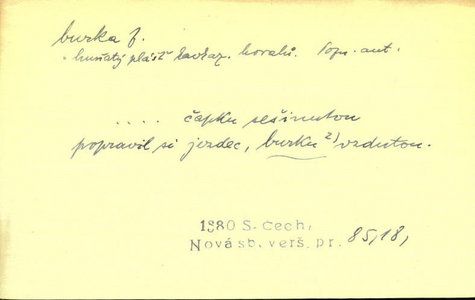 burka f.
- huňatý plášť kavkaz. horalů. Pozn. aut.
.... čapku sešinutou
popravil si jezdec, burku 2) vzdutou.
1880 S. Čech,
Nová sb. verš. pr. 85,18,